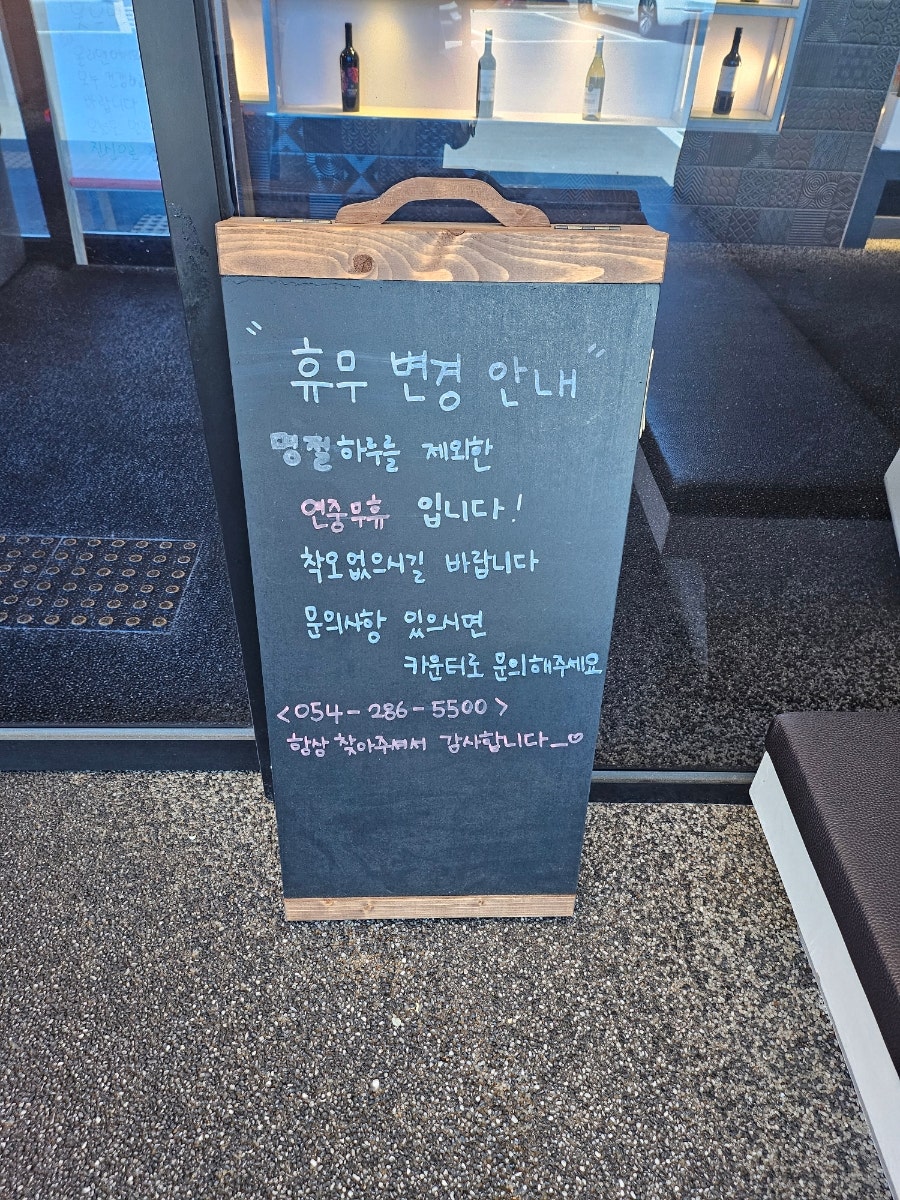 " 휴무 변경 안내 "
명절 하루를 제외한
연중무휴 입니다!
착오없으시길 바랍니다
문의사항 있으시면
카운터로 문의해주세요
<054-286-5500>
항상 찾아주셔서 감사합니다_♡